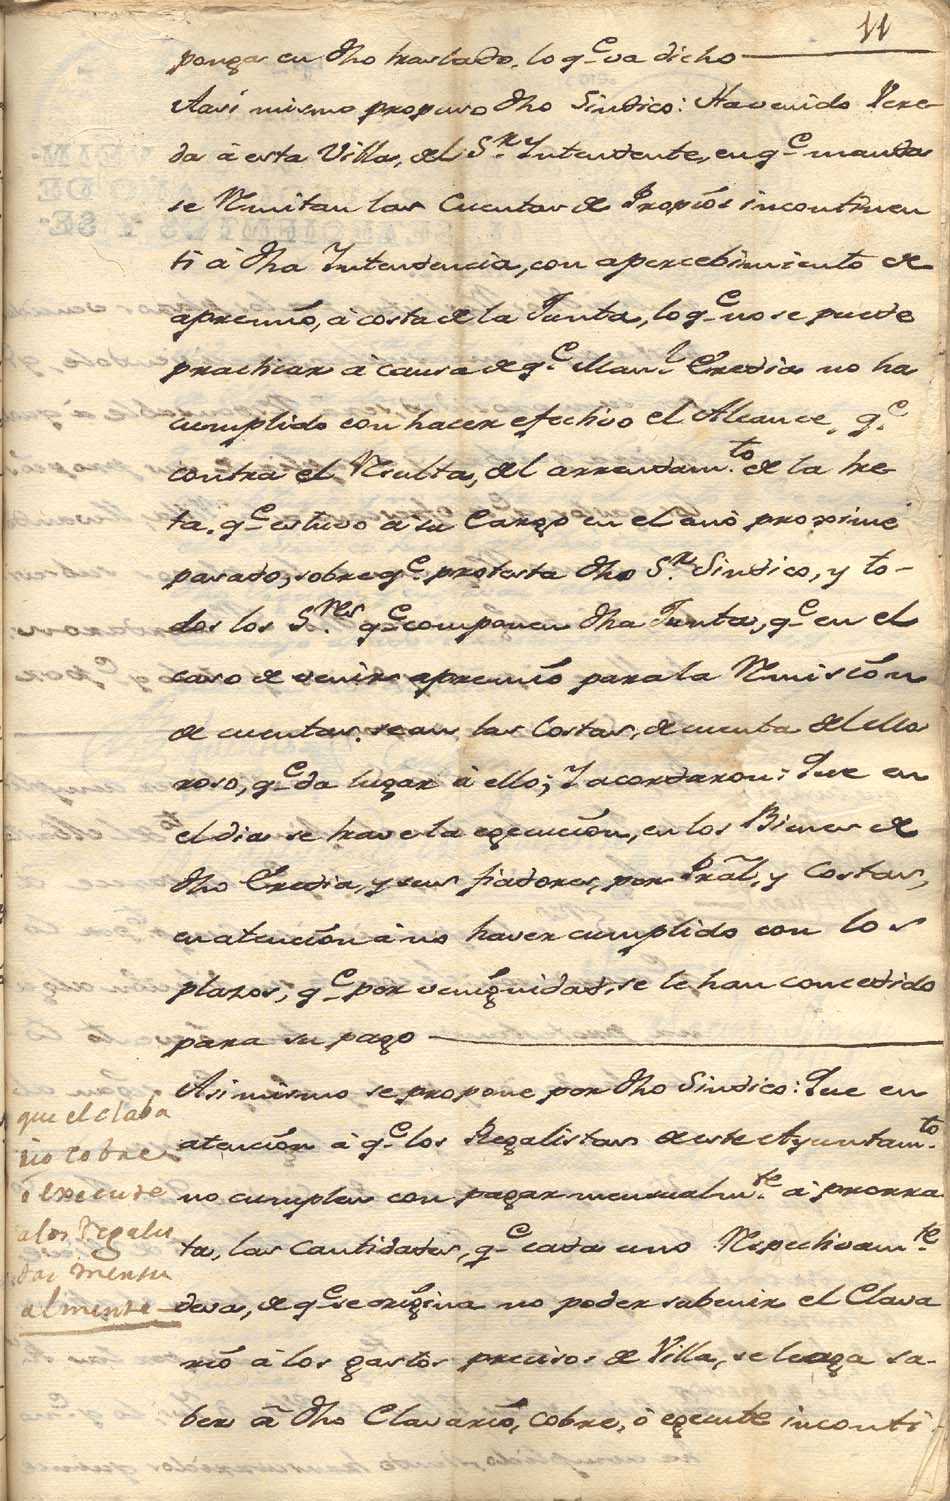 11
ponga en dho traslado, lo q.e va dicho
Assi mismo propuso dho Sindico: Havenido Vere-
da â esta Villa, del S.r Yntendente, en q.e manda
se Rmitan las Cuentas de Propiós incontinen
ti â dha Yntendencia, con apercebimiento de
apremió, â costa de la Junta, lo q.e no se puede
practicar â causa de q.e Man.l Eredia no ha
cumplido con hacer efectivo el Alcance, q.e
contra el Rsulta, del arrendam.to de la tie-
ta, q.e estuvo a su Cargo en el año proximé
pasado, sobre q.e protesta dho S.r Sindico, y to-
dos los S.res q.e componen dha Junta, q.e en el
caso de venir apremió para la Rmisión
de cuentas, sean las Costas, de cuenta del Mo
roso, q.e da lugar â ello; Y acordaron: Que en
el dia se trave la egecución, en los Bienes de
dho Eredia, y sus fiadores, por Pral, y Costas,
en atención â no haver cumplido con los
plazos, q.e por venignidad, se le han concedido
para su pago
Asimismo se propone por dho Sindico: Que en
atención â q.e los Regalistas de este Ayuntam.to
no cumplen con pagar mensualm.te â prorra
ta, las Cantidades, q.e cada uno Rspectivam.te
deva, de q.e se origina no poder subenir el Clava
rió â los gastos precisos de Villa, se le aga sa-
ber â dho Clavarió, cobre, ò egecute inconti
que el claba
rio cobre
o execute
a los Regalis
tas mensu
almente